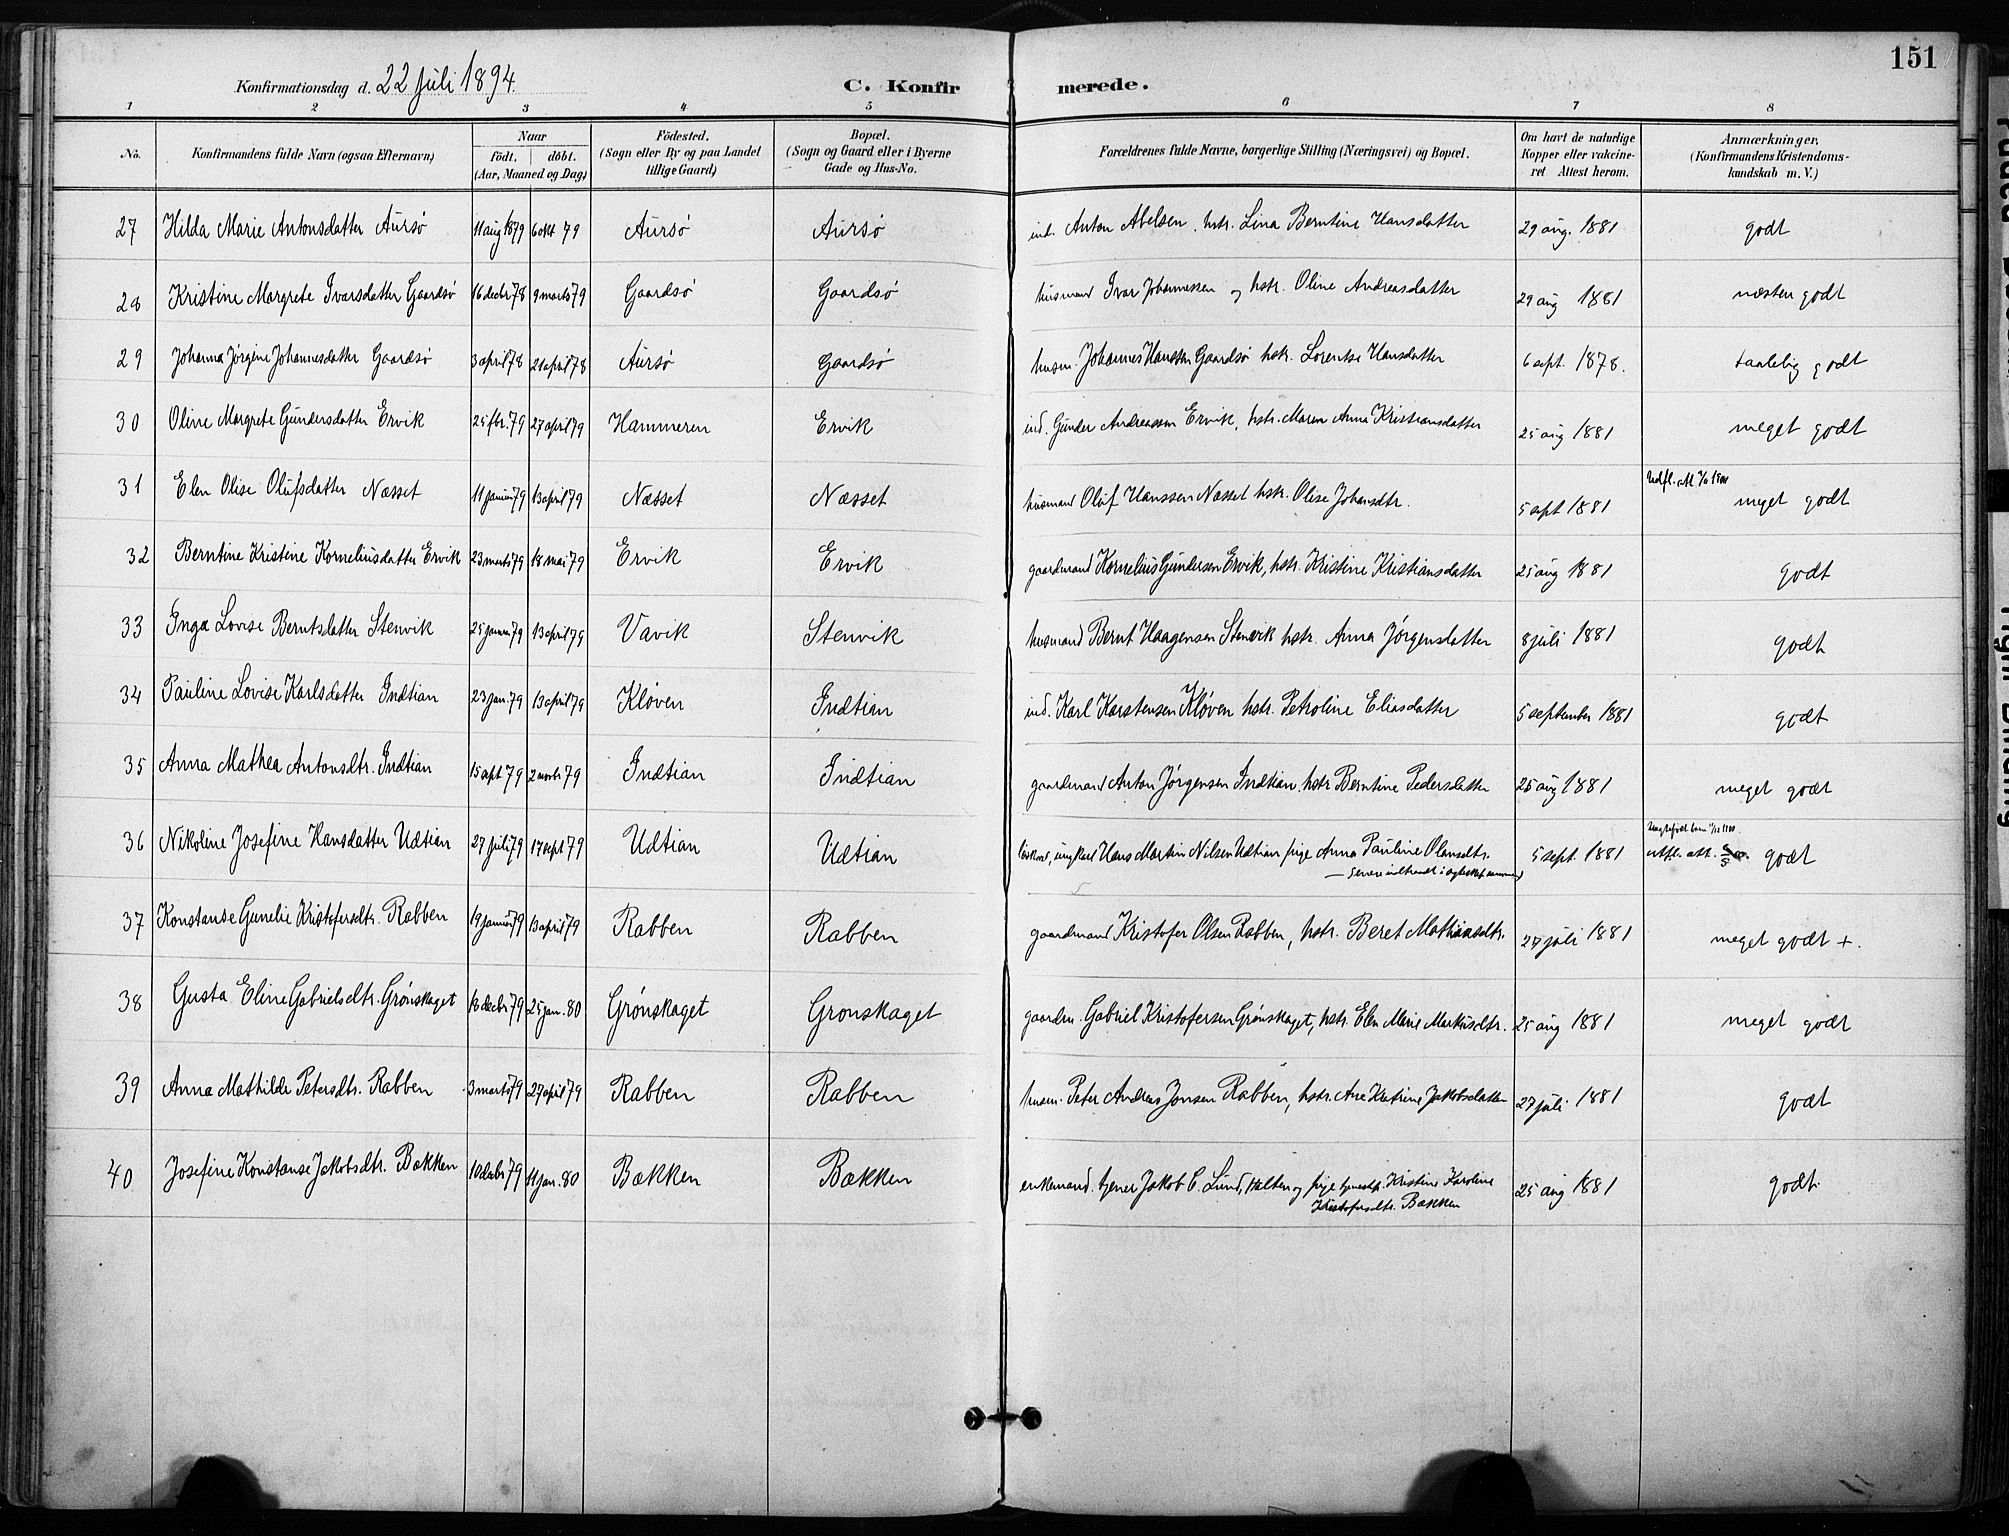 151
Konfirmationsdag d. 22 Juli 1894.
C. Konfirmerede.
1 2 3 4 5 6 7 8
No. | Konfirmandens fulde Navn (ogsaa Efternavn) | Naar født. døbt. (Aar, Maaned og Dag) | Födested. (Sogn eller By og paa Landet tillige Gaard) | Bopæl. (Sogn og Gaard eller i Byerne Gade og Hus-No. | Forældrenes fulde Navne, borgerlige Stilling (Næringsvei) og Bopæl. | Om havt de naturlige Kopper eller vakcineret Attest herom. | Anmærkninger. (Konfirmandens Kristendomskundskab m. V.)
27 Hilda Marie Antonsdatter Aursø 11 aug 1879 6 okt 79 Aursø Aursø ind. Anton Abelsen, hstr. Lina Berntine Hansdatter 29 aug. 1881 godt
28 Kristine Margrete Ivarsdatter Gaardsø 16 decbr 78 9 marts 79 Gaardsø Gaardsø husmand Ivar Johannessen og hstr. Oline Andreasdatter 29 aug 1881 næsten godt
29 Johanna Jørgine Johannesdatter Gaardsø 3 april 78 21 april 78 Aursø Gaardsø husm. Johannes Hanssen Gaardsø hstr. Lorentse Hansdatter 6 sept. 1878. taalelig godt
30 Oline Margrete Gundersdatter Ervik 25 fbr. 79 27 april 79 Hammeren Ervik ind. Gunder Andreassen Ervik, hstr. Maren Anna Kristiansdatter 25 aug 1881 meget godt
31 Elen Olise Olufsdatter Næsset 11 januar 79 13 april 79 Næsset Næsset husmand Oluf Hanssen Næsset hstr. Olise Johansdtr. 5 sept 1881 meget godt
32 Berntine Kristine Korneliusdatter Ervik 23 marts 79 18 mai 79 Ervik Ervik gaardmand Kornelius Gundersen Ervik, hstr. Kristine Kristiansdatter 25 aug 1881 godt
33 Inga Lovise Berntsdatter Stenvik 25 januar 79 13 april 79 Vavik Stenvik husmand Bernt Haagensen Stenvik hstr. Anna Jørgensdatter 8 juli 1881 godt
34 Pauline Lovise Karlsdatter Indtian 23 jan. 79 13 april 79 Kløven Indtian ind. Karl Karstensen Kløven hstr. Petroline Eliasdatter 5 september 1881 godt
35 Anna Mathea Antonsdtr. Indtian 15 sept 79 2 novbr 79 Indtian Indtian gaardmand Anton Jørgensen Indtian, hstr Berntine Pedersdatter 25 aug 1881 meget godt
36 Nikoline Josefine Hansdatter Udtian 27 juli 79 17 sept 79 Udtian Udtian ungkarl Hans Martin Nilsen Udtian pige Anna Pauline Olausdtr. 5 sept. 1881 godt
37 Konstanse Gunelie Kristofersdtr. Rabben 19 januar 79 13 april 79 Rabben Rabben gaardmand Kristofer Olsen Rabben, hstr. Beret Mathiasdtr. 27 juli 1881 meget godt +.
38 Gusta Eline Gabrielsdtr. Grønskaget 18 decbr 79 25 jan. 80 Grønskaget Grønskaget gaardm. Gabriel Kristofersen Grønskaget, hstr. Elen Marie Markusdtr. 25 aug 1881 meget godt
39 Anna Mathilde Petersdtr. Rabben 3 marts 79 27 april 79 Rabben Rabben husm. Peter Andreas Jonsen Rabben, hstr. Ane Katrine Jakobsdatter 27 juli 1881 godt
40 Josefine Konstanse Jakobsdtr. Bækken 10 decbr 79 11 jan. 80 Bækken Bækken enkemand, tjener Jakob C. Lund, Halten og pige Kristine Karoline 25 aug 1881 godt.
Kristofersdtr. Bækken